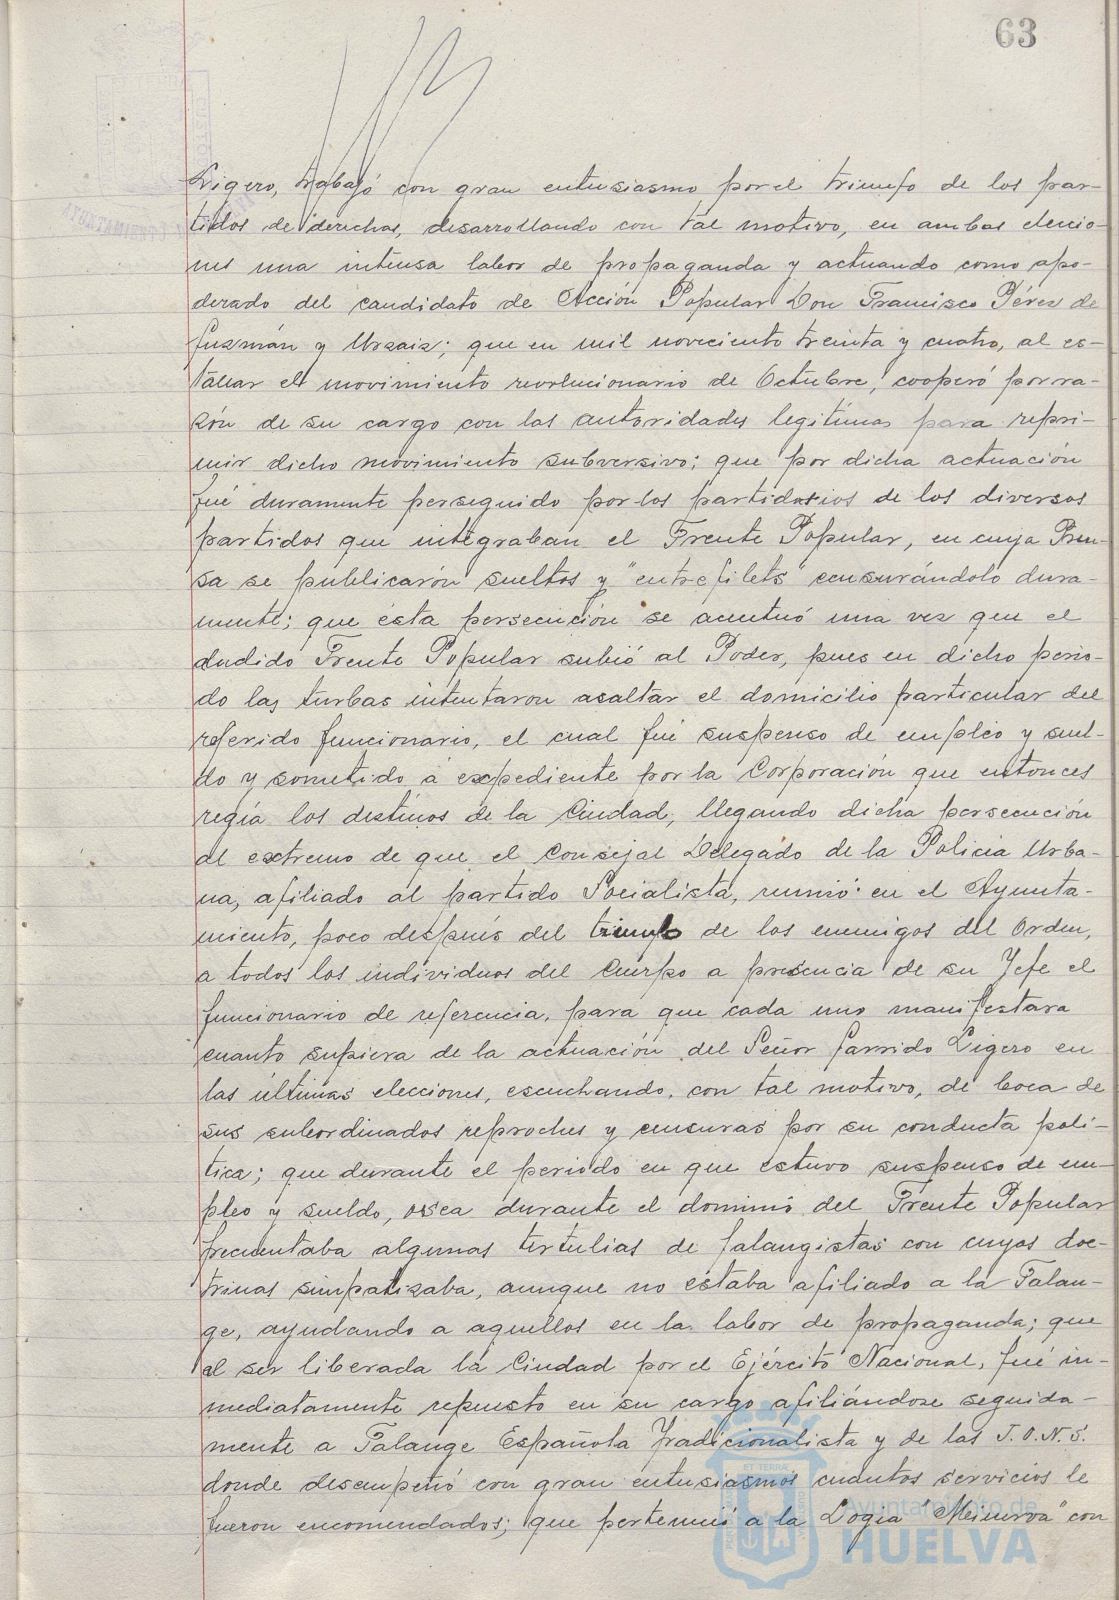 63
Ligero, trabajó con gran entusiasmo por el triunfo de los par-
tidos de derechas, desarrollando con tal motivo, en ambas eleccio-
nes una intensa labor de propaganda y actuando como apo-
derado del candidato de Acción Popular Don Francisco Pérez de
Guzmán y Urzaiz; que en mil noveciento treinta y cuatro, al es-
tallar el movimiento revolucionario de Octubre, cooperó por ra-
zón de su cargo con las autoridades legítimas para repri-
mir dicho movimiento subversivo; que por dicha actuación
fué duramente perseguido por los partidarios de los diversos
partidos que integraban el Frente Popular, en cuya Pren-
sa se publicarón sueltos y "entrefilets" censurándolo dura-
mente; que ésta persecución se acentuó una vez que el
aludido Frente Popular subió al Poder, pues en dicho perio-
do las turbas intentaron asaltar el domicilio particular del
referido funcionario, el cual fué suspenso de empleo y suel-
do y sometido a expediente por la Corporación que entonces
regía los destinos de la Ciudad, llegando dicha persecución
al extremo de que el Consejal Delegado de la Policia Urba-
na, afiliado al partido Socialista, reunió en el Ayunta-
miento, poco después del triunfo de los enemigos del Orden,
a todos los individuos del Cuerpo a presencia de su Jefe el
funcionario de referencia, para que cada uno manifestara
cuanto supiera de la actuación del Señor Garrido Ligero en
las últimas elecciones, escuchando, con tal motivo, de boca de
sus subordinados reproches y censuras por su conducta polí-
tica; que durante el periodo en que estuvo suspenso de em-
pleo y sueldo, osea durante el dominio del Frente Popular
frecuentaba algunas tertulias de falangistas con cuyas doc-
trinas simpatizaba, aunque no estaba afiliado a la Falan-
ge, ayudando a aquellos en la labor de propaganda; que
al ser liberada la Ciudad por el Ejército Nacional, fué in-
mediatamente repuesto en su cargo afiliándose seguida-
mente a Falange Española Tradicionalista y de las J.O.N.S.
donde desempeñó con gran entusiasmos cuantos servicios le
fueron encomendados; que perteneció a la Logia "Meinerva" con
Ayuntamiento de
HUELVA